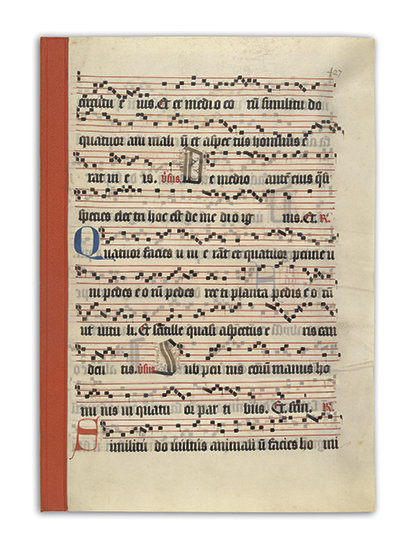 407
circuitu e ius. Et et medi o eo rū similitu do
quatuor ani mali ū et aspec tus hominis e
rat in e is. v̄sus. D e medio autē eius q̄si
species elec tri hoc est de me di o ig nis. Et. R.
Q uatuor facies u ni e rāt et quatuor penne u
ni pedes e o rū pedes rec ti planta pedis e o rū
ut uitu li. Et scintille quasi aspectus e ris can
den tis. v̄sus. S ub pen nis eorū manus ho
mi nis in quatu or par ti bus. Et scin. R.
S imilitu do uultus animali ū facies ho mi